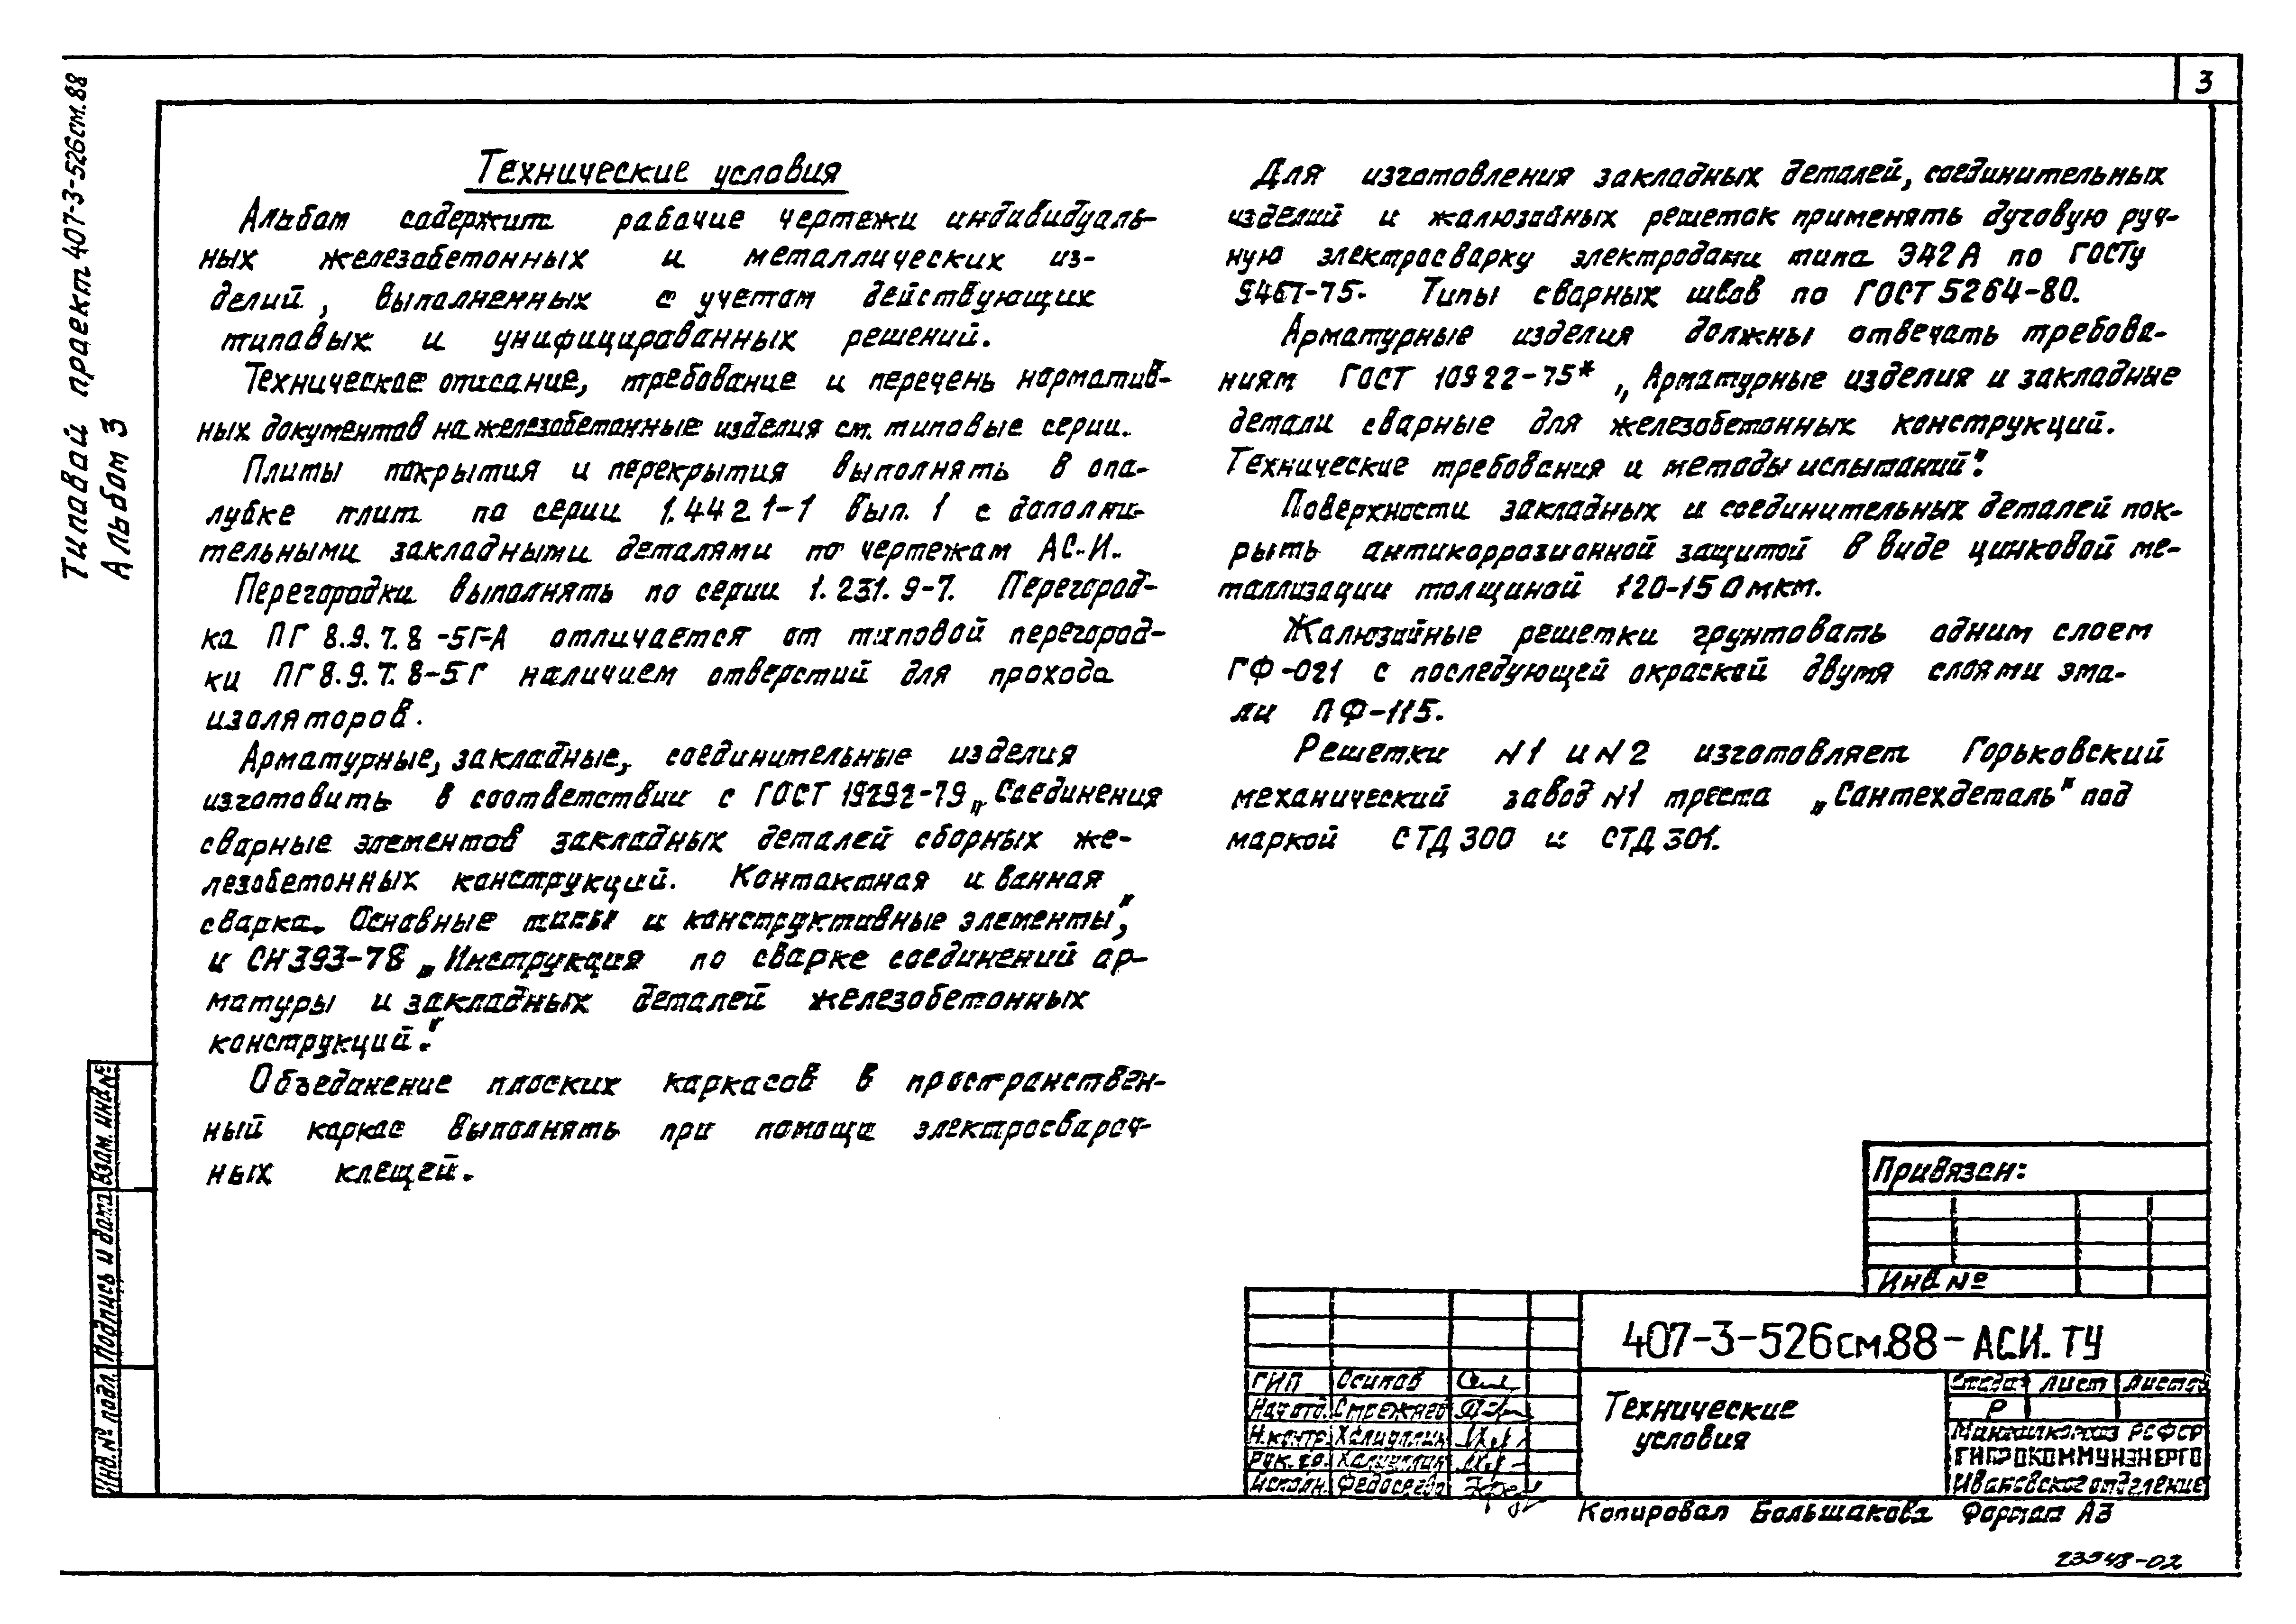 3
Типовой проект 407-3-526см.88
Альбом 3
Технические условия
Альбом содержит рабочие чертежи индивидуаль-
ных железобетонных и металлических из-
делий, выполненных с учетом действующих
типовых и унифицированных решений.
Техническое описание, требование и перечень норматив-
ных документов на железобетонные изделия см. типовые серии.
Плиты покрытия и перекрытия выполнять в опа-
лубке плит по серии 1.442.1-1 Вып. 1 с дополни-
тельными закладными деталями по чертежам АС.И.
Перегородки выполнять по серии 1.231.9-7. Перегород-
ка ПГ 8.9.7.8-5Г-А отличается от типовой перегород-
ки ПГ8.9.7.8-5Г наличием отверстий для прохода
изоляторов.
Арматурные, закладные, соединительные изделия
изготовить в соответствии с ГОСТ 19292-79 „Соединения
сварные элементов закладных деталей сборных же-
лезобетонных конструкций. Контактная и ванная
сварка. Основные типы и конструктивные элементы",
и СН393-78 „Инструкция по сварке соединений ар-
матуры и закладных деталей железобетонных
конструкций".
Объединение плоских каркасов в пространствен-
ный каркас выполнять при помощи электросвароч-
ных клещей.
Для изготовления закладных деталей, соединительных
изделий и жалюзийных решеток применять дуговую руч-
ную электросварку электродами типа Э42А по ГОСТу
9467-75. Типы сварных швов по ГОСТ 5264-80.
Арматурные изделия должны отвечать требова-
ниям ГОСТ 10922-75* „Арматурные изделия и закладные
детали сварные для железобетонных конструкций.
Технические требования и методы испытаний".
Поверхности закладных и соединительных деталей пок-
рыть антикоррозионной защитой в виде цинковой ме-
таллизации толщиной 120-150мкм.
Жалюзийные решетки грунтовать одним слоем
ГФ-021 с последующей окраской двумя слоями эма-
ли ПФ-115.
Решетки N1 и N2 изготовляет Горьковский
механический завод N1 треста „Сантехдеталь" под
маркой СТД 300 и СТД 301.
Привязан:
Инв №
407-3-526см.88-АС.И.ТУ
ГИП Осипов
Нач отд. Стрежнев
Н.контр. Халиуллин
Рук. гр. Халиуллин
Исполн. Федосеева
Технические
условия
Стадия Лист Листов
Р
Минжилкомхоз РСФСР
ГИПРОКОММУНЭНЕРГО
Ивановское отделение
Копировал Большакова Формат А3
23548-02
Взам. инв.№
Подпись и дата
Инв.№ подл.